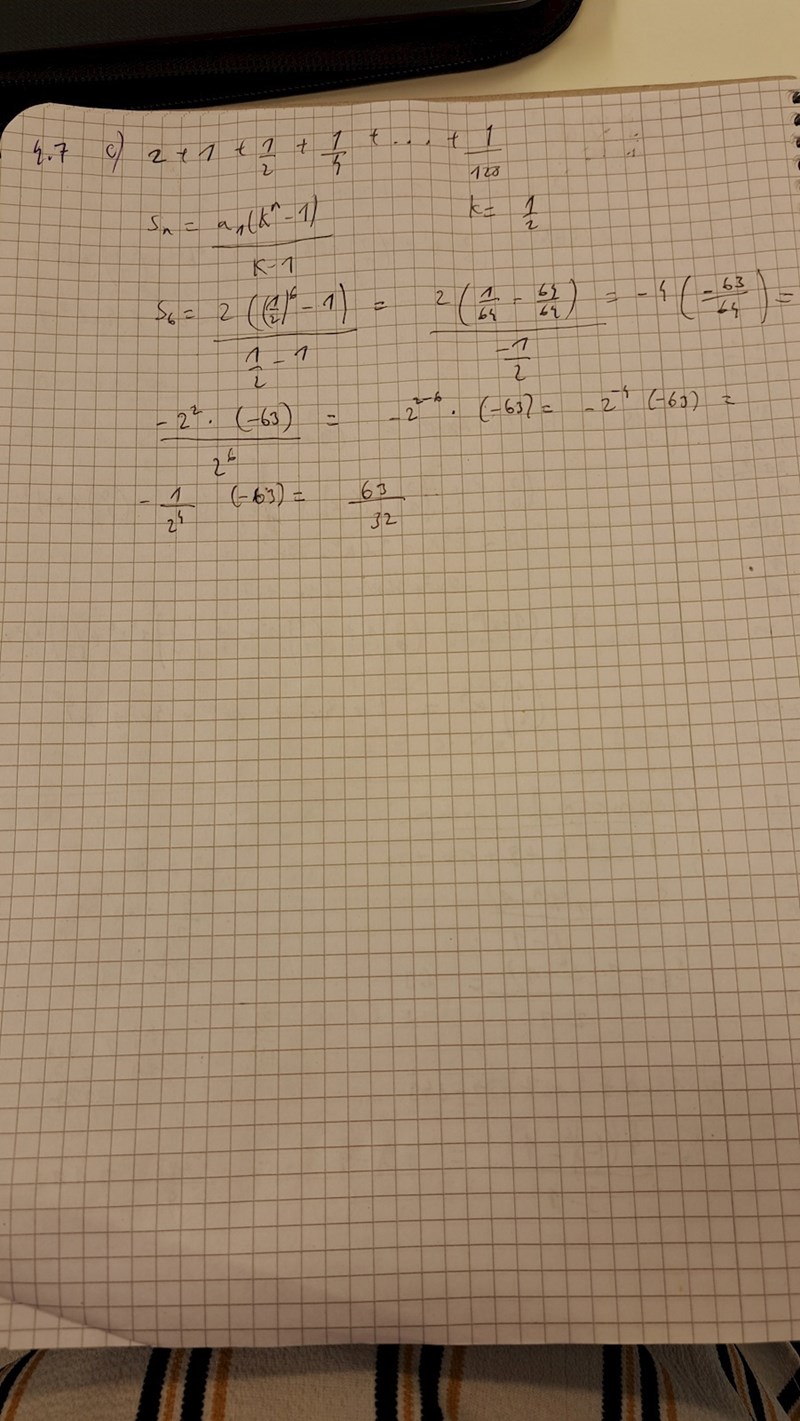 4.7 c) 2 + 1 + 1/2 + 1/4 + ... + 1/128
Sn = a1(k^n - 1) / k - 1 k = 1/2
S6 = 2((1/2)^6 - 1) / 1/2 - 1 = 2(1/64 - 64/64) / -1/2 = -4(-63/64) =
-2^2 · (-63) / 2^6 = -2^2-6 · (-63) = -2^-4 (-63) =
-1/2^4 (-63) = 63/32